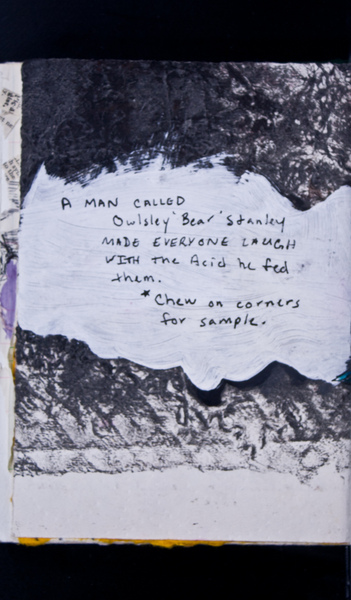 A MAN CALLED
Owlsley "Bear" Stanley
MADE EVERYONE LAUGH
WITH the Acid he fed
them.
* Chew on corners
for sample.